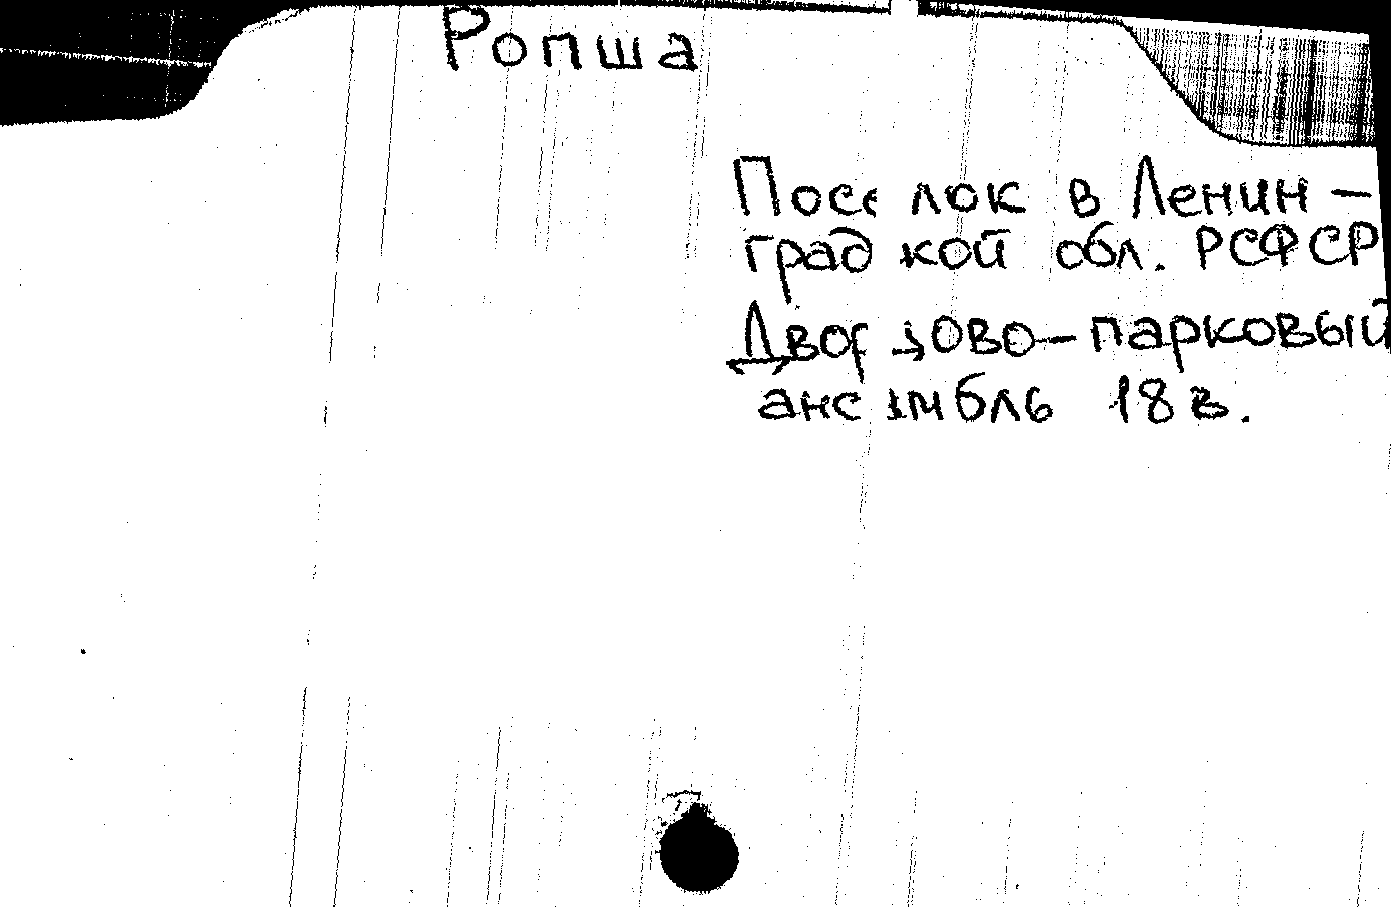 Ропша
Поселок в Ленин-
градкой обл. РСФСР
Дворцово-парковый
ансамбль 18 в.